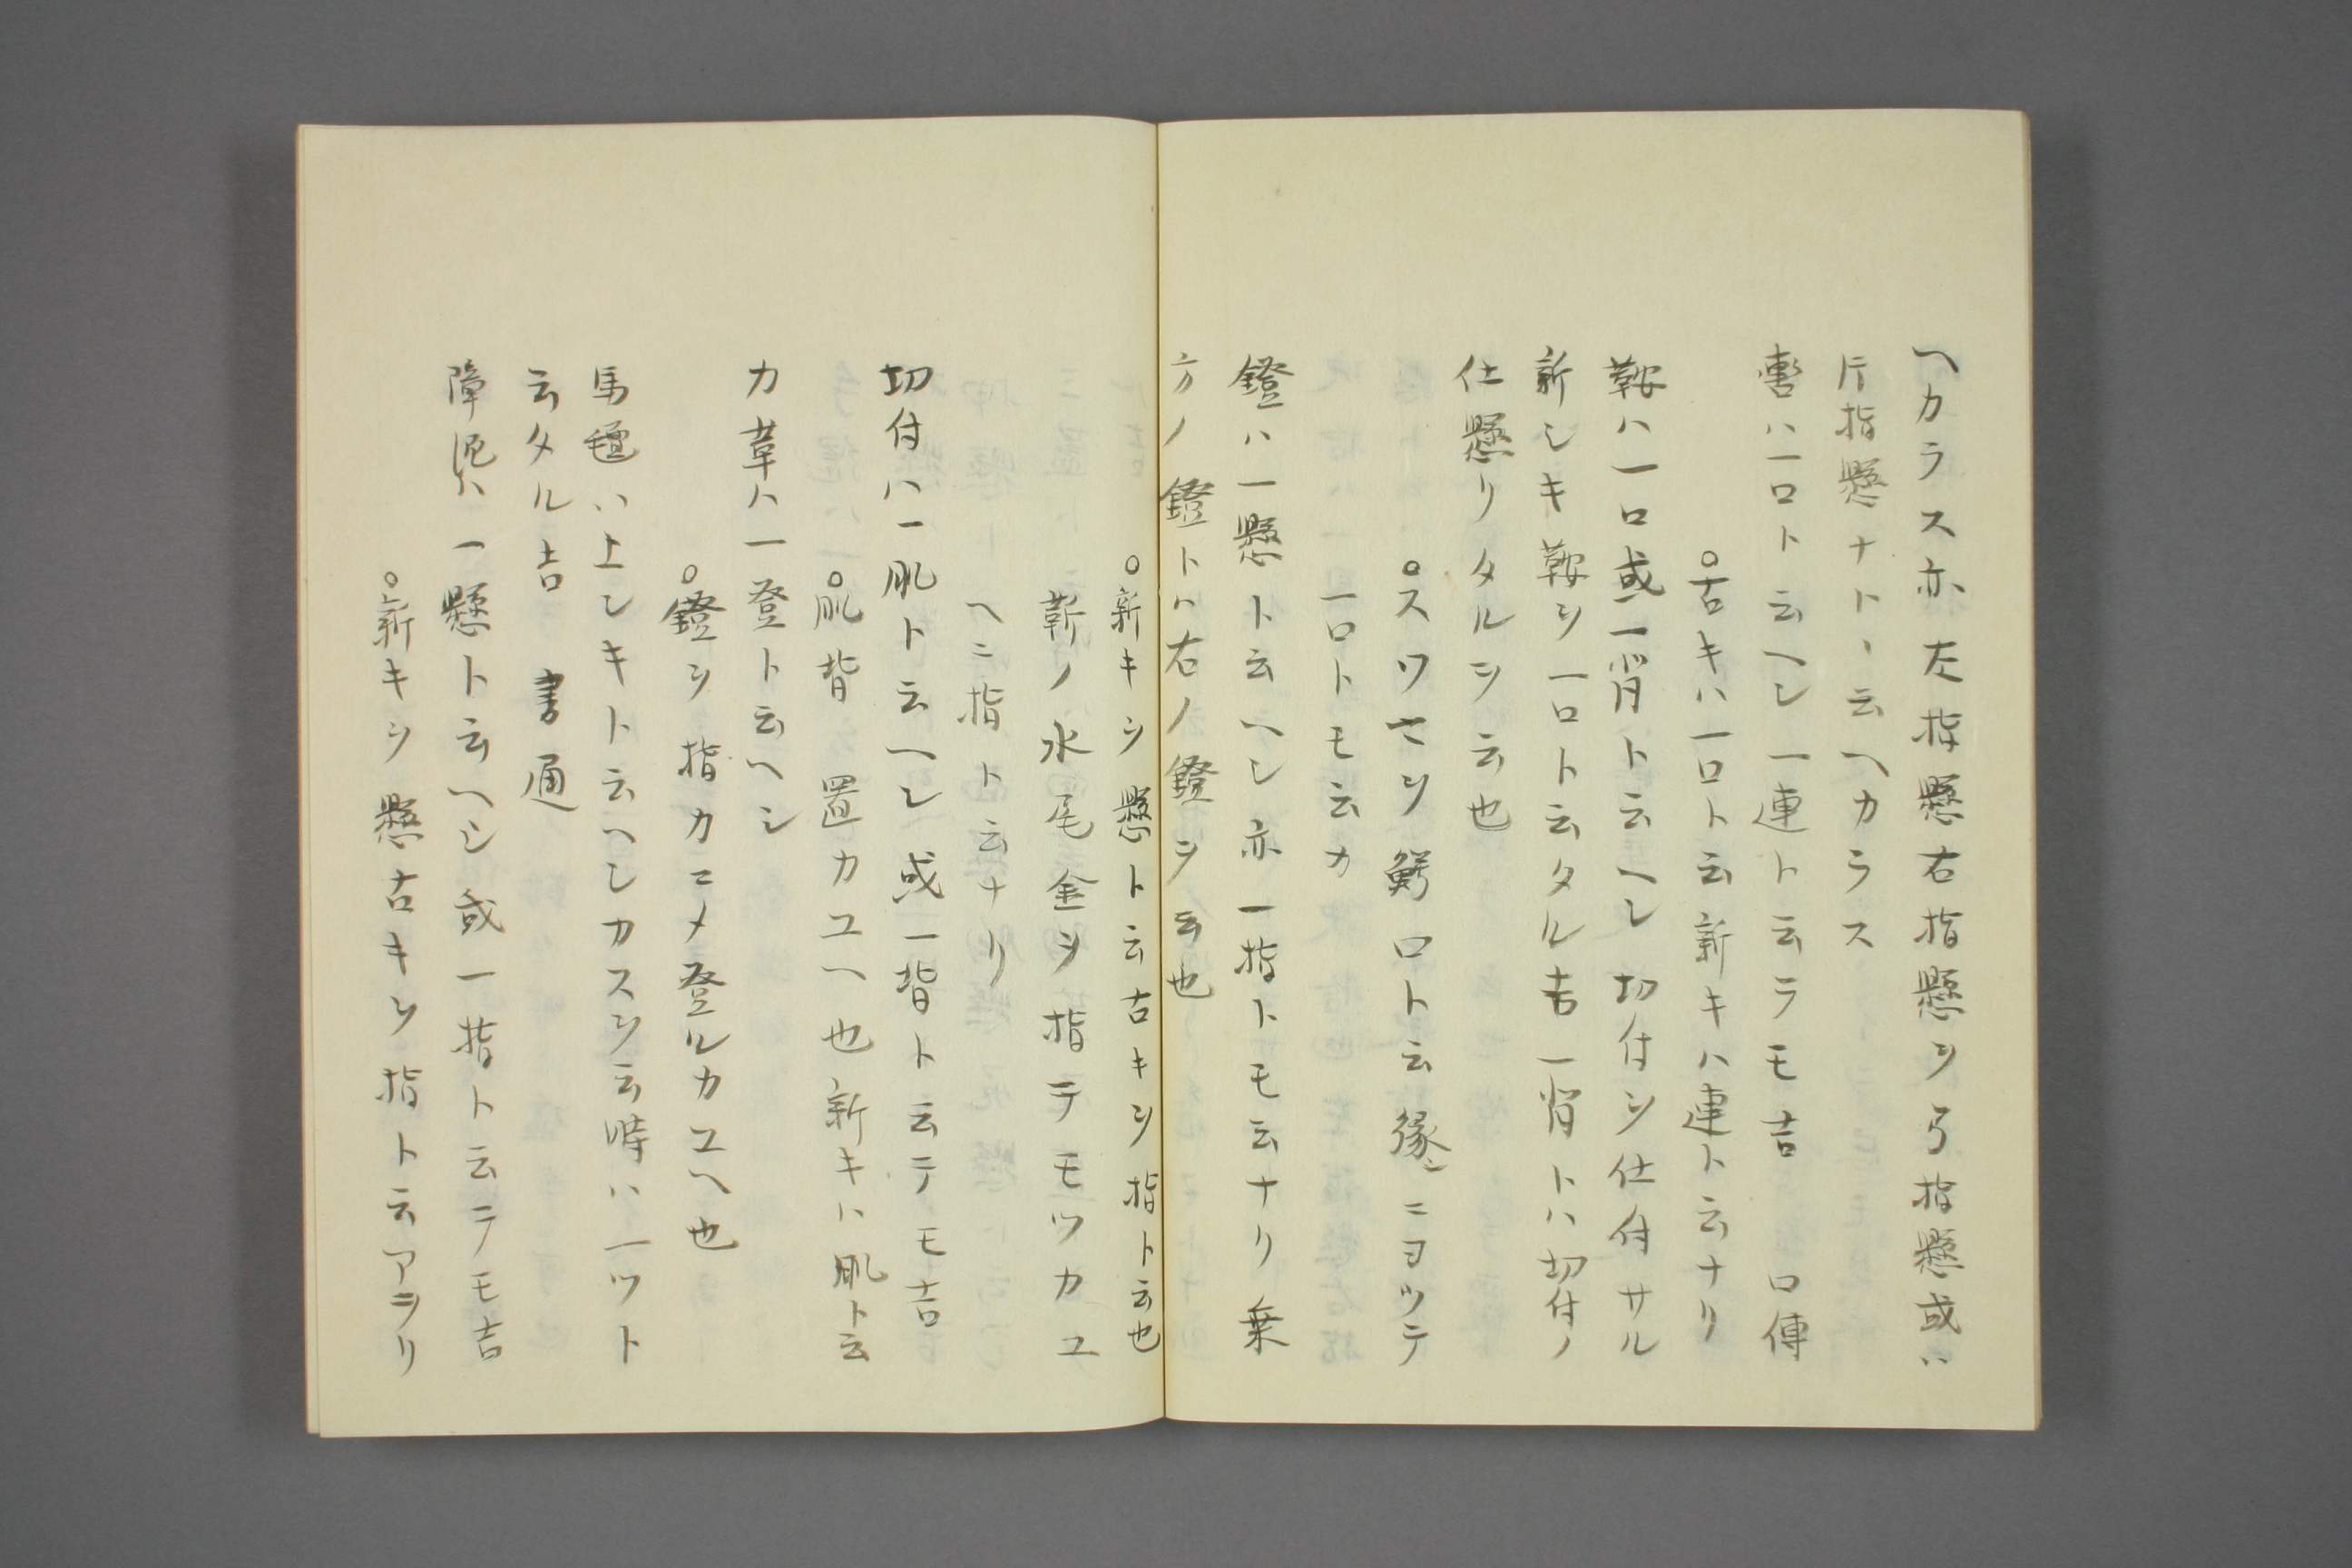 ヘカラス亦左指懸右指懸ヲ弓指懸或ハ
片指懸ナトヽ云ヘカラス
轡ハ一口ト云ヘシ一連ト云ラモ吉 口傳
○古キハ一口ト云新キハ連ト云ナリ
鞍ハ一口或一背ト云ヘシ切付ヲ仕付サル
新シキ鞍ヲ一口ト云タル吉一背トハ切付ノ
仕懸リタルヲ云也
○スワマヲ鰐口ト云縁ニヨツテ
一口トモ云カ
鐙ハ一懸ト云ヘシ亦一指トモ云ナリ乗
方ノ鐙トハ右ノ鐙ヲ云也
○新キヲ懸ト云古キヲ指ト云也
靳ノ水尾金ヲ指テモツカユ
ヘニ指ト云ナリ
切付ハ一肌ト云ヘシ或一背ト云テモ吉
○肌背 置カユヘ也新キハ肌ト云
力韋ハ一登ト云ヘシ
○鐙ヲ指カニメ登ルカユヘ也
馬氊ハ上シキト云ヘシカスヲ云時ハ一ツト
云タル吉 書通
障泥ハ一懸ト云ヘシ或一指ト云テモ吉
○新キヲ懸古キヲ指ト云アラリ